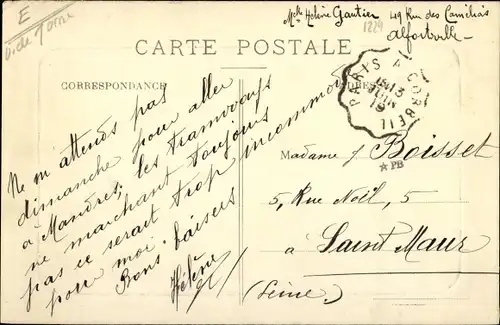 E
Mlle Hélène Gautier 49 Rue des Camélias
1229
Alfortville
CARTE POSTALE
CORRESPONDANCE
PARIS A CORBEIL
13
JUIN
19
Ne m'attends pas
dimanche pour aller
à Mandres; les tramways
ne marchant toujours
pas ce serait trop incommode
pour moi.
Bons baisers
Hélène
Madame Boisset
PB
5, Rue Noël, 5
à Saint Maur
(Seine)